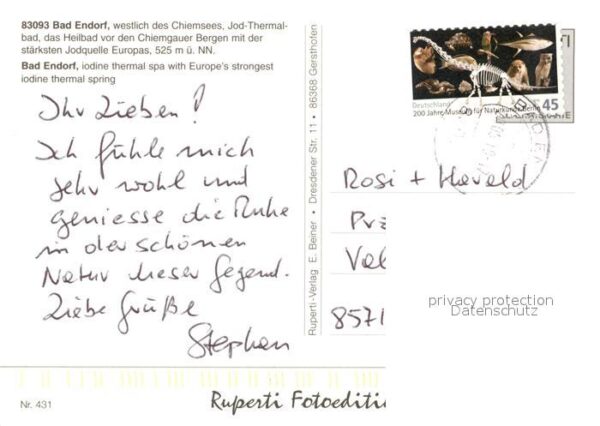 83093 Bad Endorf, westlich des Chiemsees, Jod-Thermal-
bad, das Heilbad vor den Chiemgauer Bergen mit der
stärksten Jodquelle Europas, 525 m ü. NN.
Bad Endorf, iodine thermal spa with Europe's strongest
iodine thermal spring
Ihr Lieben!
Ich fühle mich
sehr wohl und
geniesse die Ruhe
in der schönen
Natur dieser Gegend.
Liebe Grüße
Stephan
Nr. 431
Ruperti-Verlag E. Beiner • Dresdener Str. 11 • 86368 Gersthofen
Ruperti Fotoeditio
Deutschland
45
200 Jahre Museum für Naturkunde Berlin
Rosi + Harald
8571
privacy protection
Datenschutz